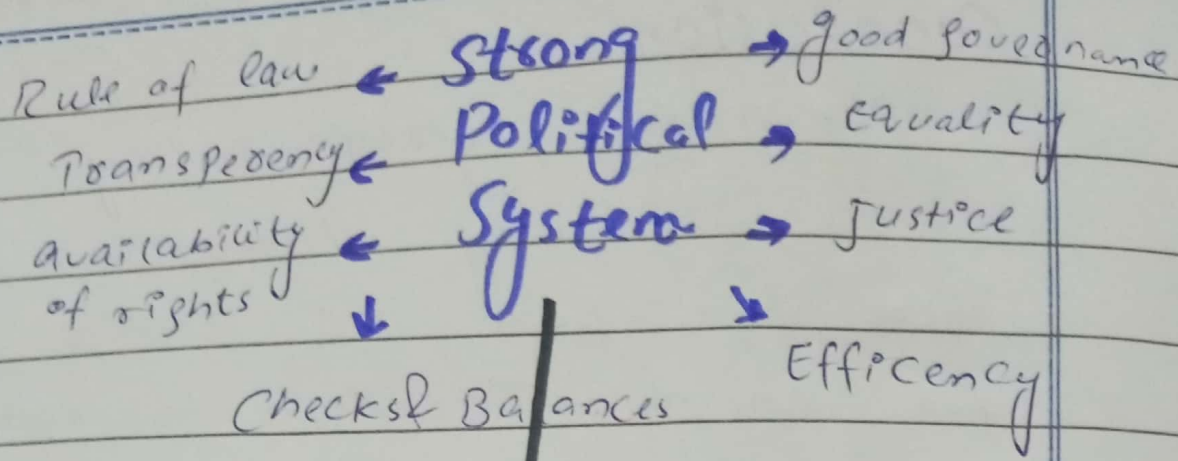 Rule of law ← Strong → good governance
Transperency ← Political → Equality
availability ← System → Justice
of rights ↓ ↘
Checks & Balances Efficency